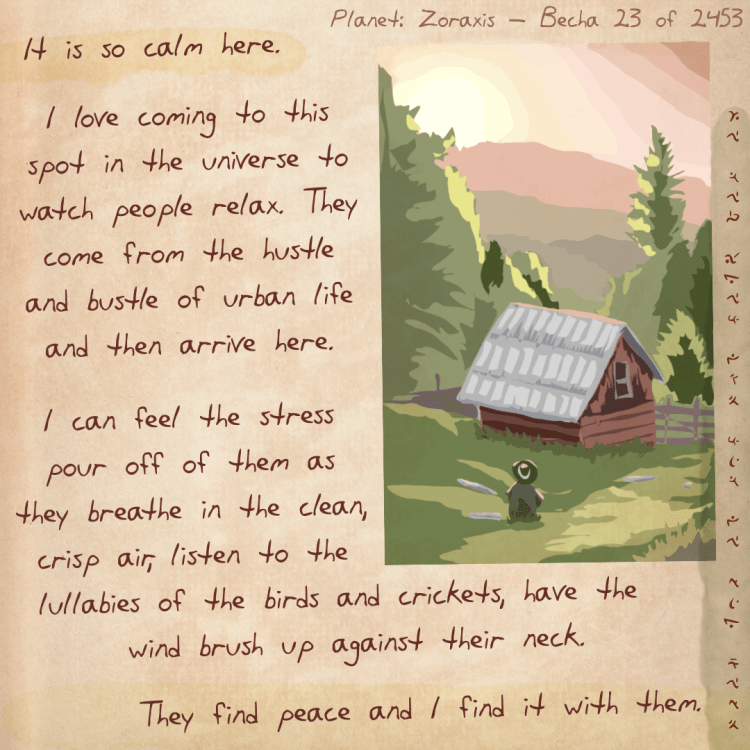 Planet: Zoraxis — Becha 23 of 2453
It is so calm here.
I love coming to this
spot in the universe to
watch people relax. They
come from the hustle
and bustle of urban life
and then arrive here.
I can feel the stress
pour off of them as
they breathe in the clean,
crisp air, listen to the
lullabies of the birds and crickets, have the
wind brush up against their neck.
They find peace and I find it with them.